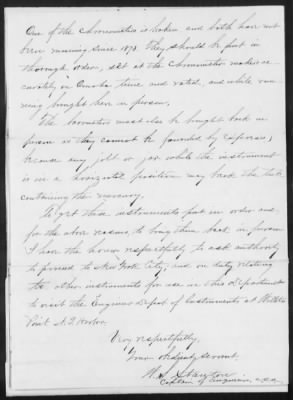 One of the chronometers is broken and both have not
been running since 1873. They should be put in
thorough order, set at the Chronometer makers ac-
curately, on Omaha time and rated, and while run-
ning brought here in person.
The barometers must also be brought back in
person as they cannot be forwarded by express,
because any jolt or jar while the instrument
is in a horizontal position may break the tube
containing the mercury.
To get these instruments put in order and,
for the above reasons, to bring them back in person
I have the honor respectfully to ask authority
to proceed to New York City, and on duty relating
to other instruments for use in this Department
to visit the Engineer Depot of Instruments at Willets
Point N.Y. Harbor.
Very respectfully,
Your obedient servant.
W. S. Stanton
Captain of Engineers, U.S.A.